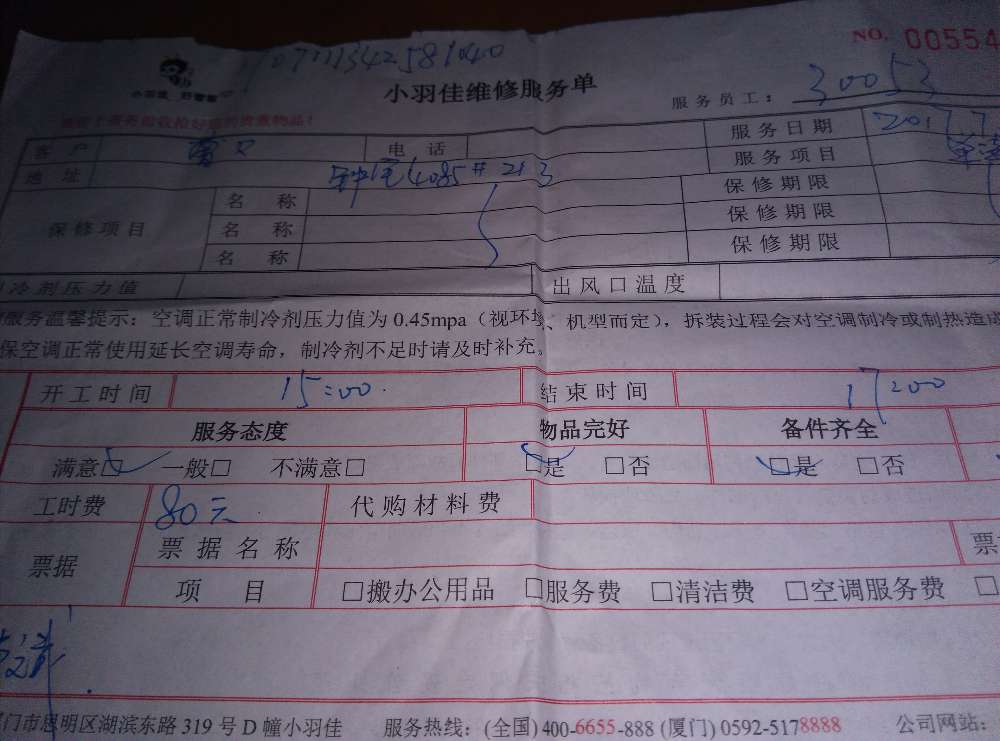 NO. 00554
小羽佳维修服务单
服务员工: 30053
客 户 电 话 服务日期 2017
地 址 4085#213 服务项目
保修项目 名 称 保修期限
名 称 保修期限
名 称 保修期限
冷剂压力值 出风口温度
服务温馨提示：空调正常制冷剂压力值为 0.45mpa（视环境、机型而定），拆装过程会对空调制冷或制热造成
保空调正常使用延长空调寿命，制冷剂不足时请及时补充。
开工时间 15:00 结束时间 17:00
服务态度 物品完好 备件齐全
满意□ 一般□ 不满意□ □是 □否 □是 □否
工时费 80元 代购材料费
票据 票据名称 票
项 目 □搬办公用品 □服务费 □清洁费 □空调服务费
门市思明区湖滨东路 319 号 D 幢小羽佳 服务热线：(全国) 400-6655-888 (厦门) 0592-5178888 公司网站：